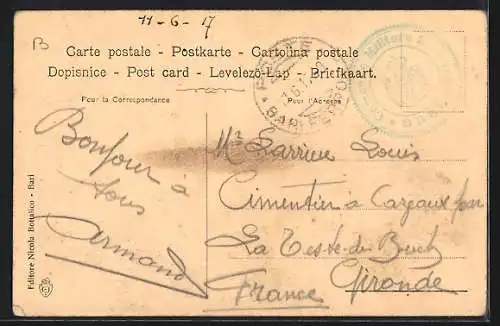 11-6-17
B
Carte postale - Postkarte - Cartolina postale
Dopisnice - Post card - Levelezö-Lap - Briefkaart.
Pour la Correspondance
Pour l'Adresse
Bonjour à
tous
Armand
Mr Larrieu Louis
Cimentier à Cazeaux par
La Teste-du Buch
Gironde
France
Editore Nicola Bottalico - Bari
BARI